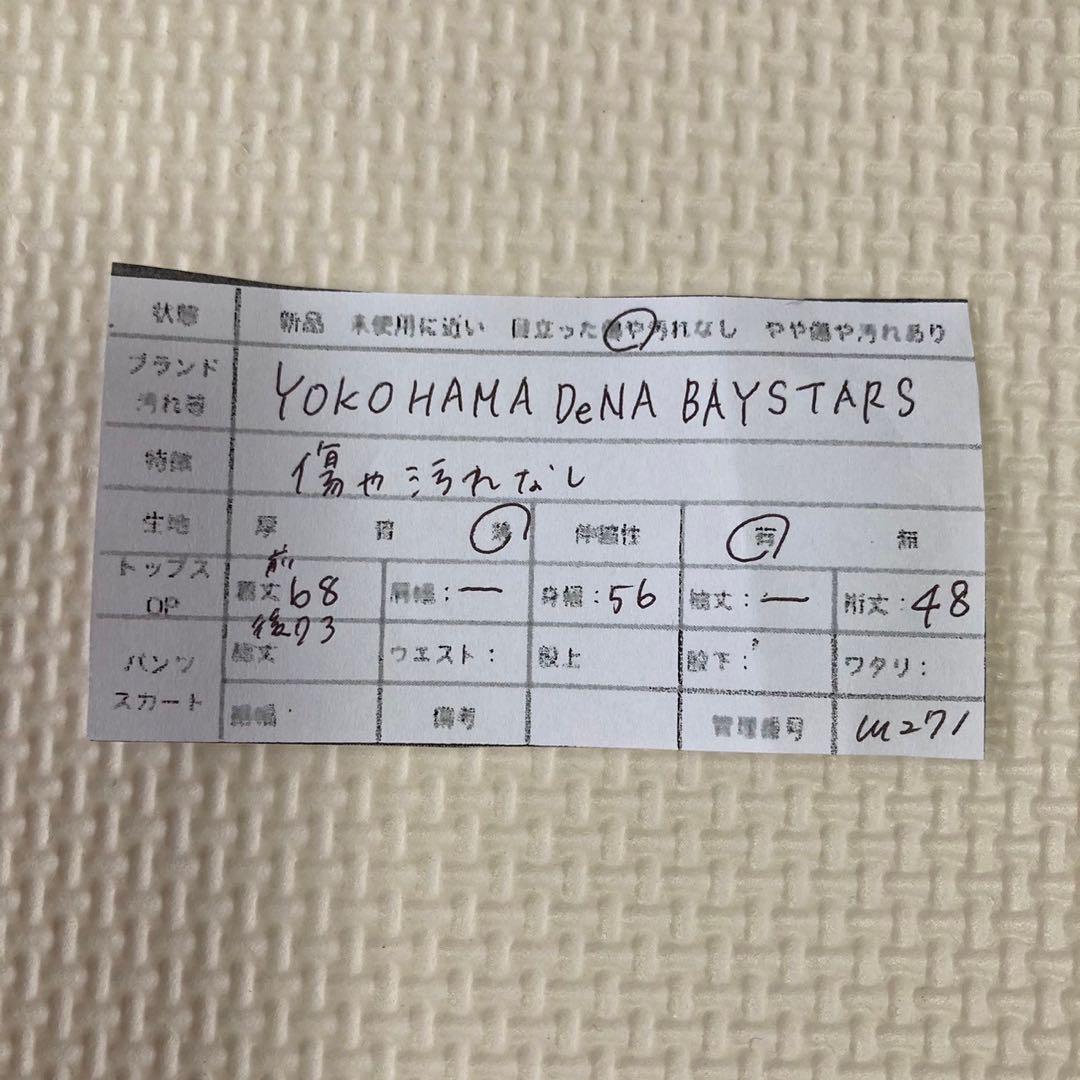 状態 新品 未使用に近い 目立った傷や汚れなし やや傷や汚れあり
ブランド
汚れ等 YOKOHAMA DeNA BAYSTARS
特徴 傷や汚れなし
生地 厚 普 薄 伸縮性 有 無
トップス
OP 着丈 前68 後73 肩幅:ー 身幅:56 袖丈:ー 裄丈:48
パンツ
スカート 総丈 ウエスト: 股上 股下: ワタリ:
裾幅 備考 管理番号 m271